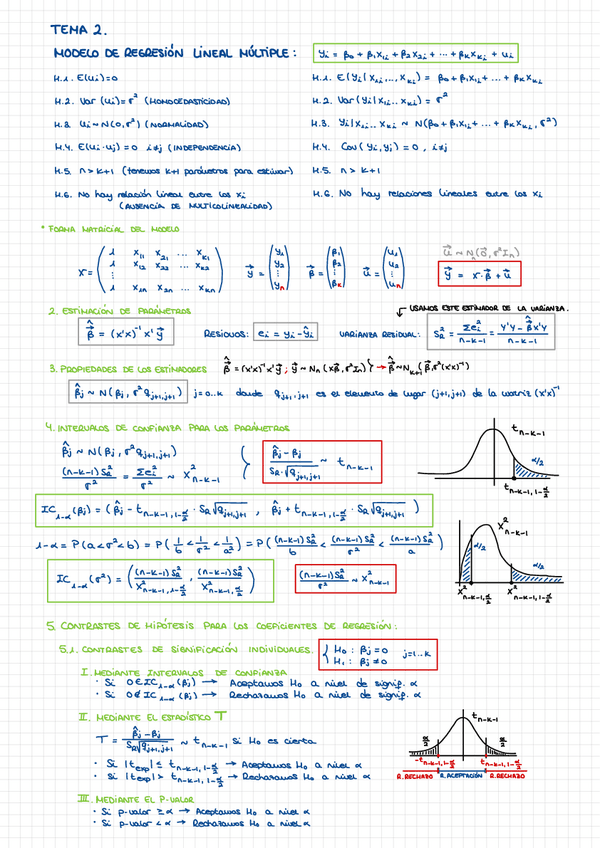 TEMA 2.
MODELO DE REGRESIÓN LINEAL MÚLTIPLE: yᵢ = β₀ + β₁x₁ᵢ + β₂x₂ᵢ + ... + βₖxₖᵢ + uᵢ
H.1. E(uᵢ)=0 H.1. E(yᵢ|x₁ᵢ,...,xₖᵢ) = β₀ + β₁x₁ᵢ + ... + βₖxₖᵢ
H.2. Var(uᵢ)=σ² (HOMOCEDASTICIDAD) H.2. Var(yᵢ|x₁ᵢ...xₖᵢ) = σ²
H.3. uᵢ ~ N(0,σ²) (NORMALIDAD) H.3. yᵢ|x₁ᵢ...xₖᵢ ~ N(β₀ + β₁x₁ᵢ + ... + βₖxₖᵢ, σ²)
H.4. E(uᵢ·uⱼ)=0 i≠j (INDEPENDENCIA) H.4. Cov(yᵢ,yⱼ) = 0, i≠j
H.5. n > k+1 (tenemos k+1 parámetros para estimar) H.5. n > k+1
H.6. No hay relación lineal entre las xᵢ H.6. No hay relaciones lineales entre las xᵢ
(AUSENCIA DE MULTICOLINEALIDAD)
* FORMA MATRICIAL DEL MODELO
u⃗ ~ N(0⃗, σ²Iₙ)
X = (1 x₁₁ x₂₁ ... xₖ₁
1 x₁₂ x₂₂ ... xₖ₂
⋮
1 x₁ₙ x₂ₙ ... xₖₙ) y⃗ = (y₁ y₂ ⋮ yₙ) β⃗ = (β₁ β₂ ⋮ βₖ) u⃗ = (u₁ u₂ ⋮ uₙ) y⃗ = x·β⃗ + u⃗
2. ESTIMACIÓN DE PARÁMETROS USAMOS ESTE ESTIMADOR DE LA VARIANZA.
β̂⃗ = (x'x)⁻¹ x' y⃗ RESIDUOS: eᵢ = yᵢ - ŷᵢ VARIANZA RESIDUAL: S²_R = Σeᵢ²/(n-k-1) = (y'y - β̂⃗x'y)/(n-k-1)
3. PROPIEDADES DE LOS ESTIMADORES β̂⃗ = (x'x)⁻¹x'y⃗ ; y⃗ ~ Nₙ(xβ⃗, σ²Iₙ)} → β̂⃗ ~ Nₖ₊₁(β⃗, σ²(x'x)⁻¹)
β̂ⱼ ~ N(βⱼ, σ²qⱼ₊₁,ⱼ₊₁) j=0..k donde qⱼ₊₁,ⱼ₊₁ es el elemento de lugar (j+1,j+1) de la matriz (x'x)⁻¹
4. INTERVALOS DE CONFIANZA PARA LOS PARÁMETROS
β̂ⱼ ~ N(βⱼ, σ²qⱼ₊₁,ⱼ₊₁)
(n-k-1)S²_R/σ² = Σeᵢ²/σ² ~ χ²_{n-k-1} { (β̂ⱼ - βⱼ)/(S_R·√qⱼ₊₁,ⱼ₊₁) ~ t_{n-k-1}
t_{n-k-1}
α/2
t_{n-k-1, 1-α/2}
IC_{1-α}(βⱼ) = (β̂ⱼ - t_{n-k-1, 1-α/2} · S_R√qⱼ₊₁,ⱼ₊₁ , β̂ⱼ + t_{n-k-1, 1-α/2} · S_R√qⱼ₊₁,ⱼ₊₁)
1-α = P(a<σ²<b) = P(1/b < 1/σ² < 1/a²) = P((n-k-1)S²_R/b < (n-k-1)S²_R/σ² < (n-k-1)S²_R/a)
IC_{1-α}(σ²) = ((n-k-1)S²_R/χ²_{n-k-1, 1-α/2} , (n-k-1)S²_R/χ²_{n-k-1, α/2}) (n-k-1)S²_R/σ² ~ χ²_{n-k-1}
χ²_{n-k-1}
α/2 α/2
χ²_{n-k-1, α/2} χ²_{n-k-1, 1-α/2}
5. CONTRASTES DE HIPÓTESIS PARA LOS COEFICIENTES DE REGRESIÓN:
5.1. CONTRASTES DE SIGNIFICACIÓN INDIVIDUALES. { H₀: βⱼ=0 j=1...k
H₁: βⱼ≠0
I. MEDIANTE INTERVALOS DE CONFIANZA
• Si 0∈IC_{1-α}(βⱼ) → Aceptamos H₀ a nivel de signif. α
• Si 0∉IC_{1-α}(βⱼ) → Rechazamos H₀ a nivel de signif. α
II. MEDIANTE EL ESTADÍSTICO T
T = (β̂ⱼ - βⱼ)/(S_R√qⱼ₊₁,ⱼ₊₁) ~ t_{n-k-1} si H₀ es cierta
• Si |t_exp| ≤ t_{n-k-1, 1-α/2} → Aceptamos H₀ a nivel α
• Si |t_exp| > t_{n-k-1, 1-α/2} → Rechazamos H₀ a nivel α
t_{n-k-1}
α/2 α/2
-t_{n-k-1, 1-α/2} t_{n-k-1, 1-α/2}
R.RECHAZO R.ACEPTACIÓN R.RECHAZO
III. MEDIANTE EL P-VALOR
• Si p-valor ≥ α → Aceptamos H₀ a nivel α
• Si p-valor < α → Rechazamos H₀ a nivel α